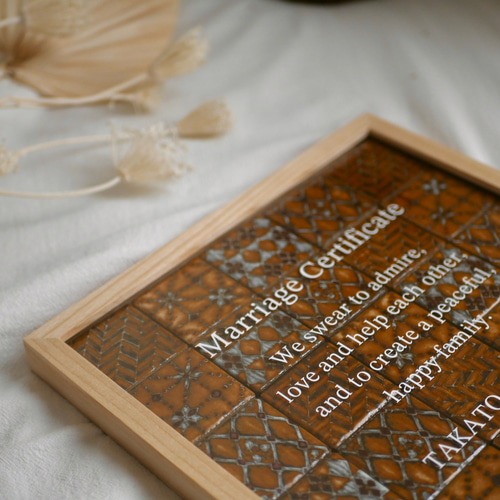 Marriage Certificate
We swear to admire,
love and help each other
and to create a peaceful,
happy family.
TAKATO